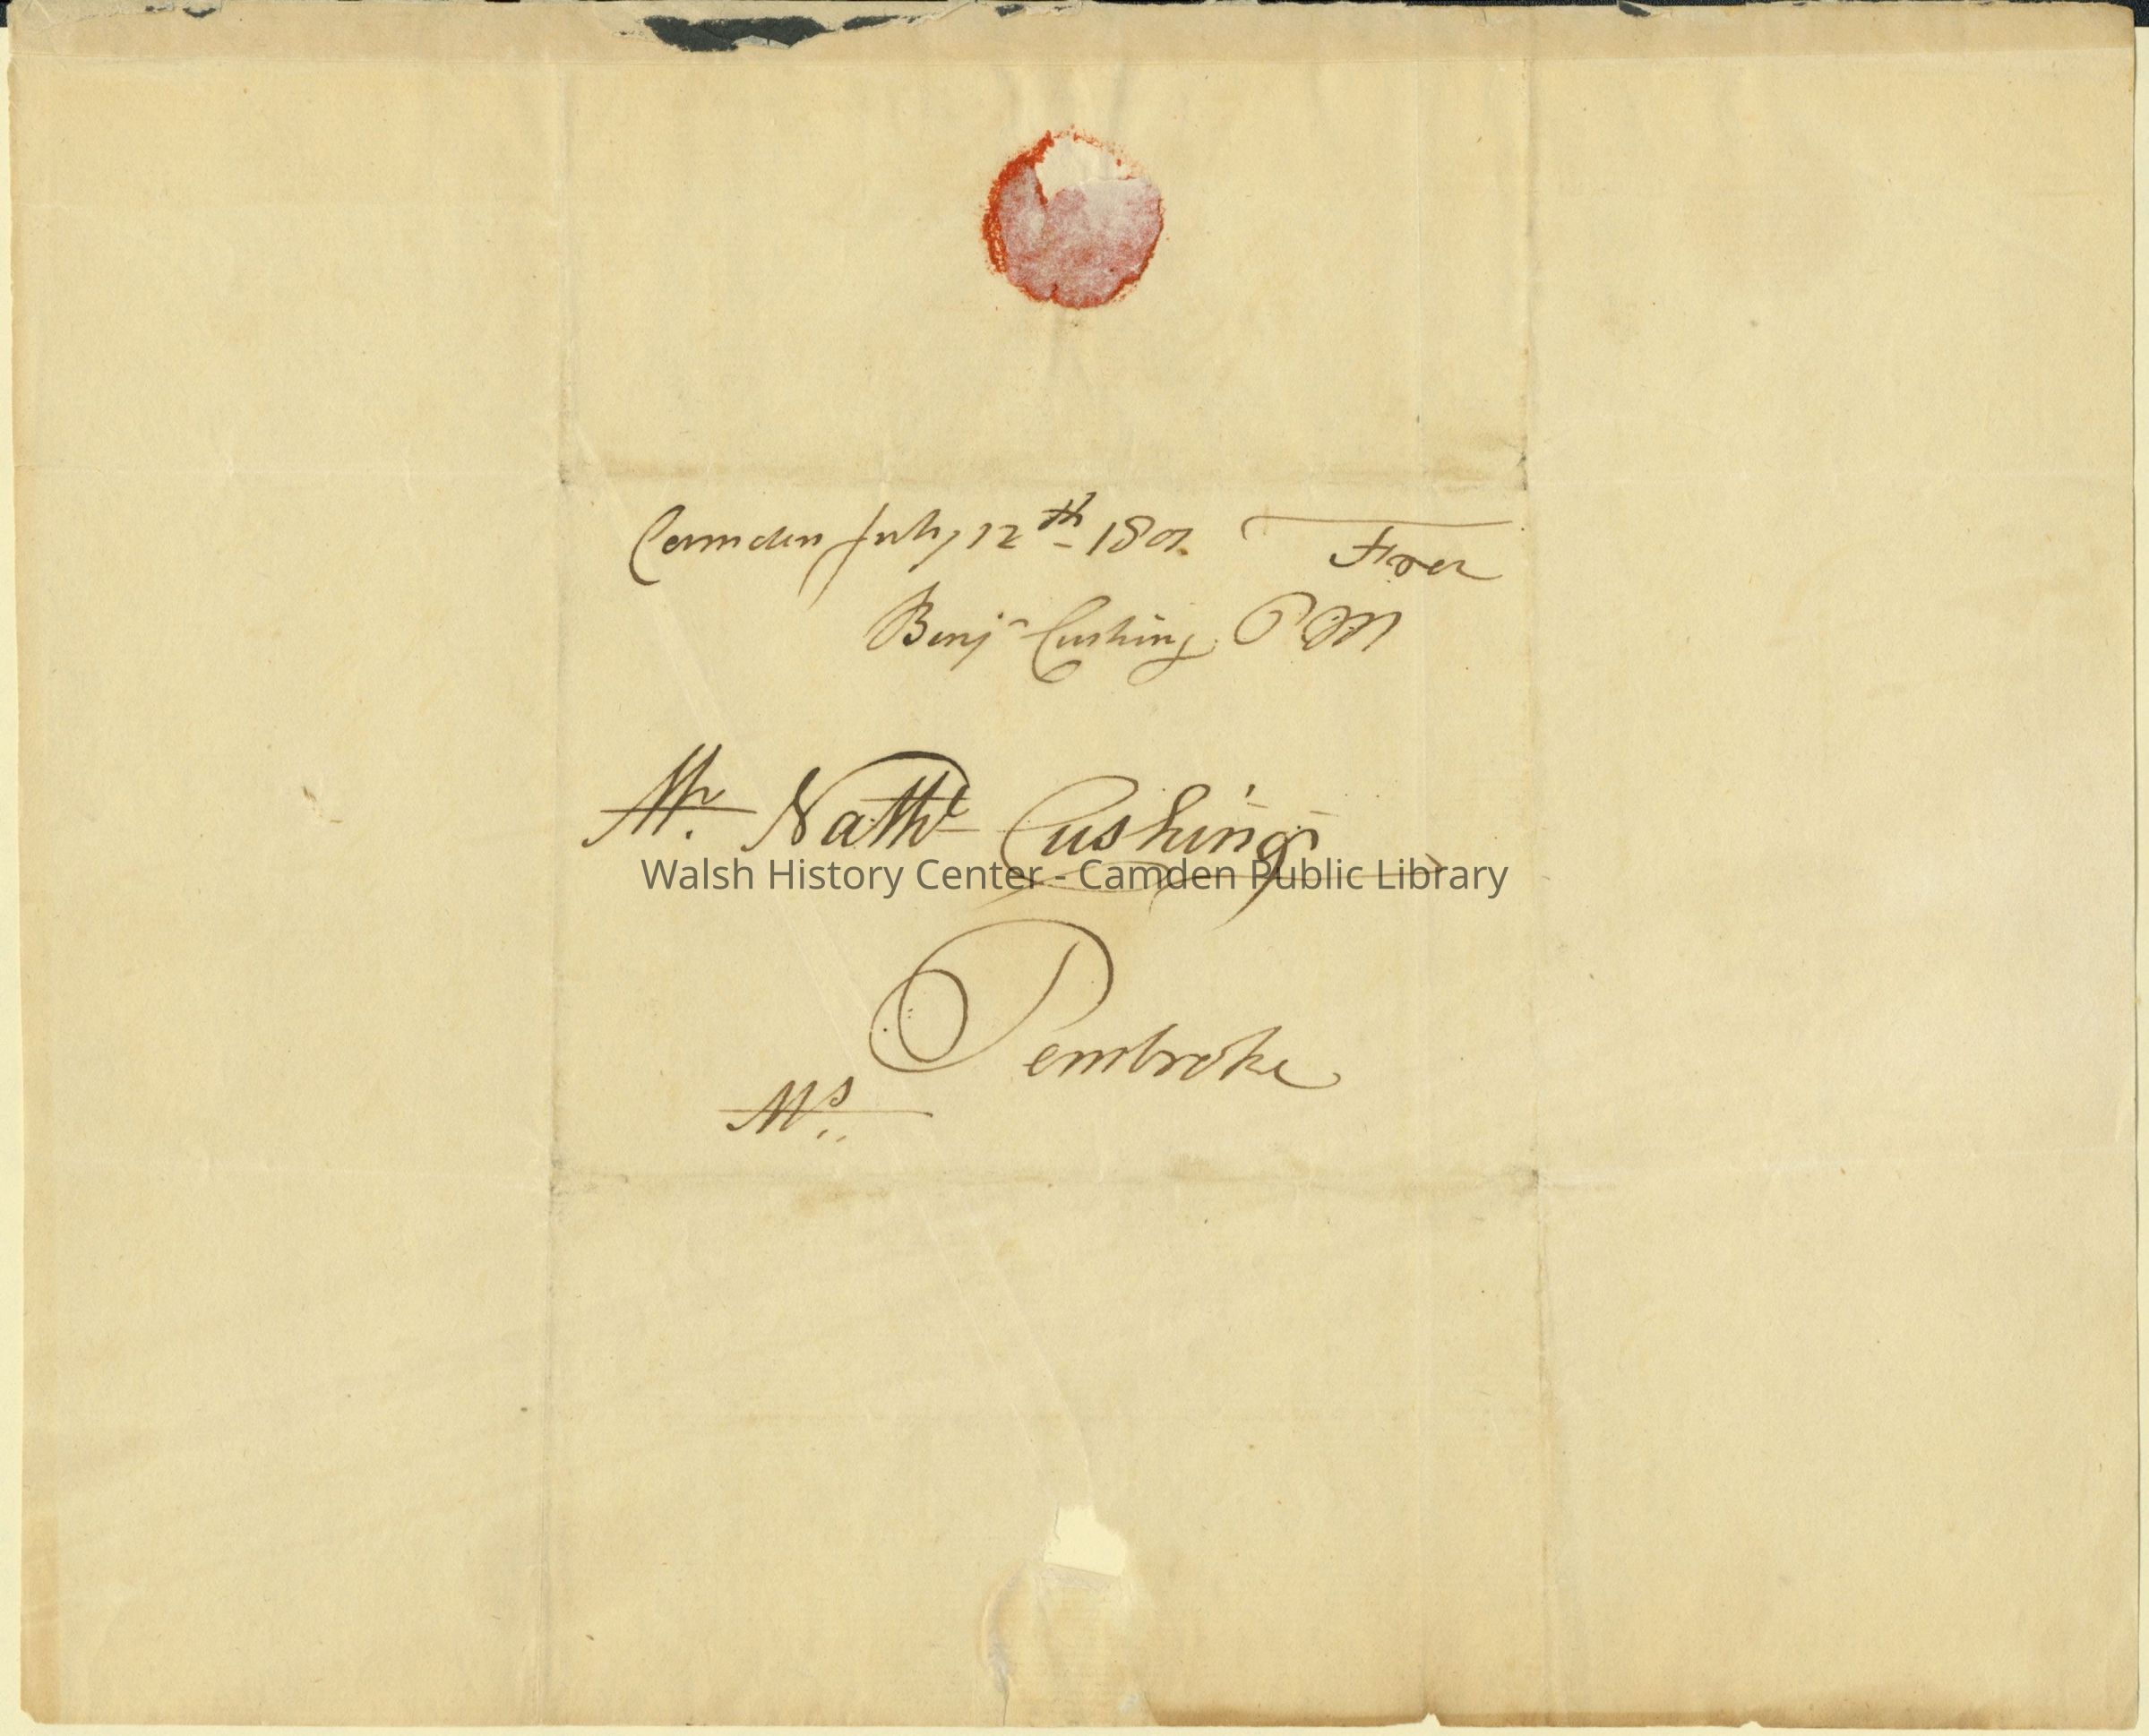 Camden July 12th - 180 Free
Benjn Cushing P M
Mr. Nathl Cushing
Walsh History Center - Camden Public Library
Pembroke
Ms.